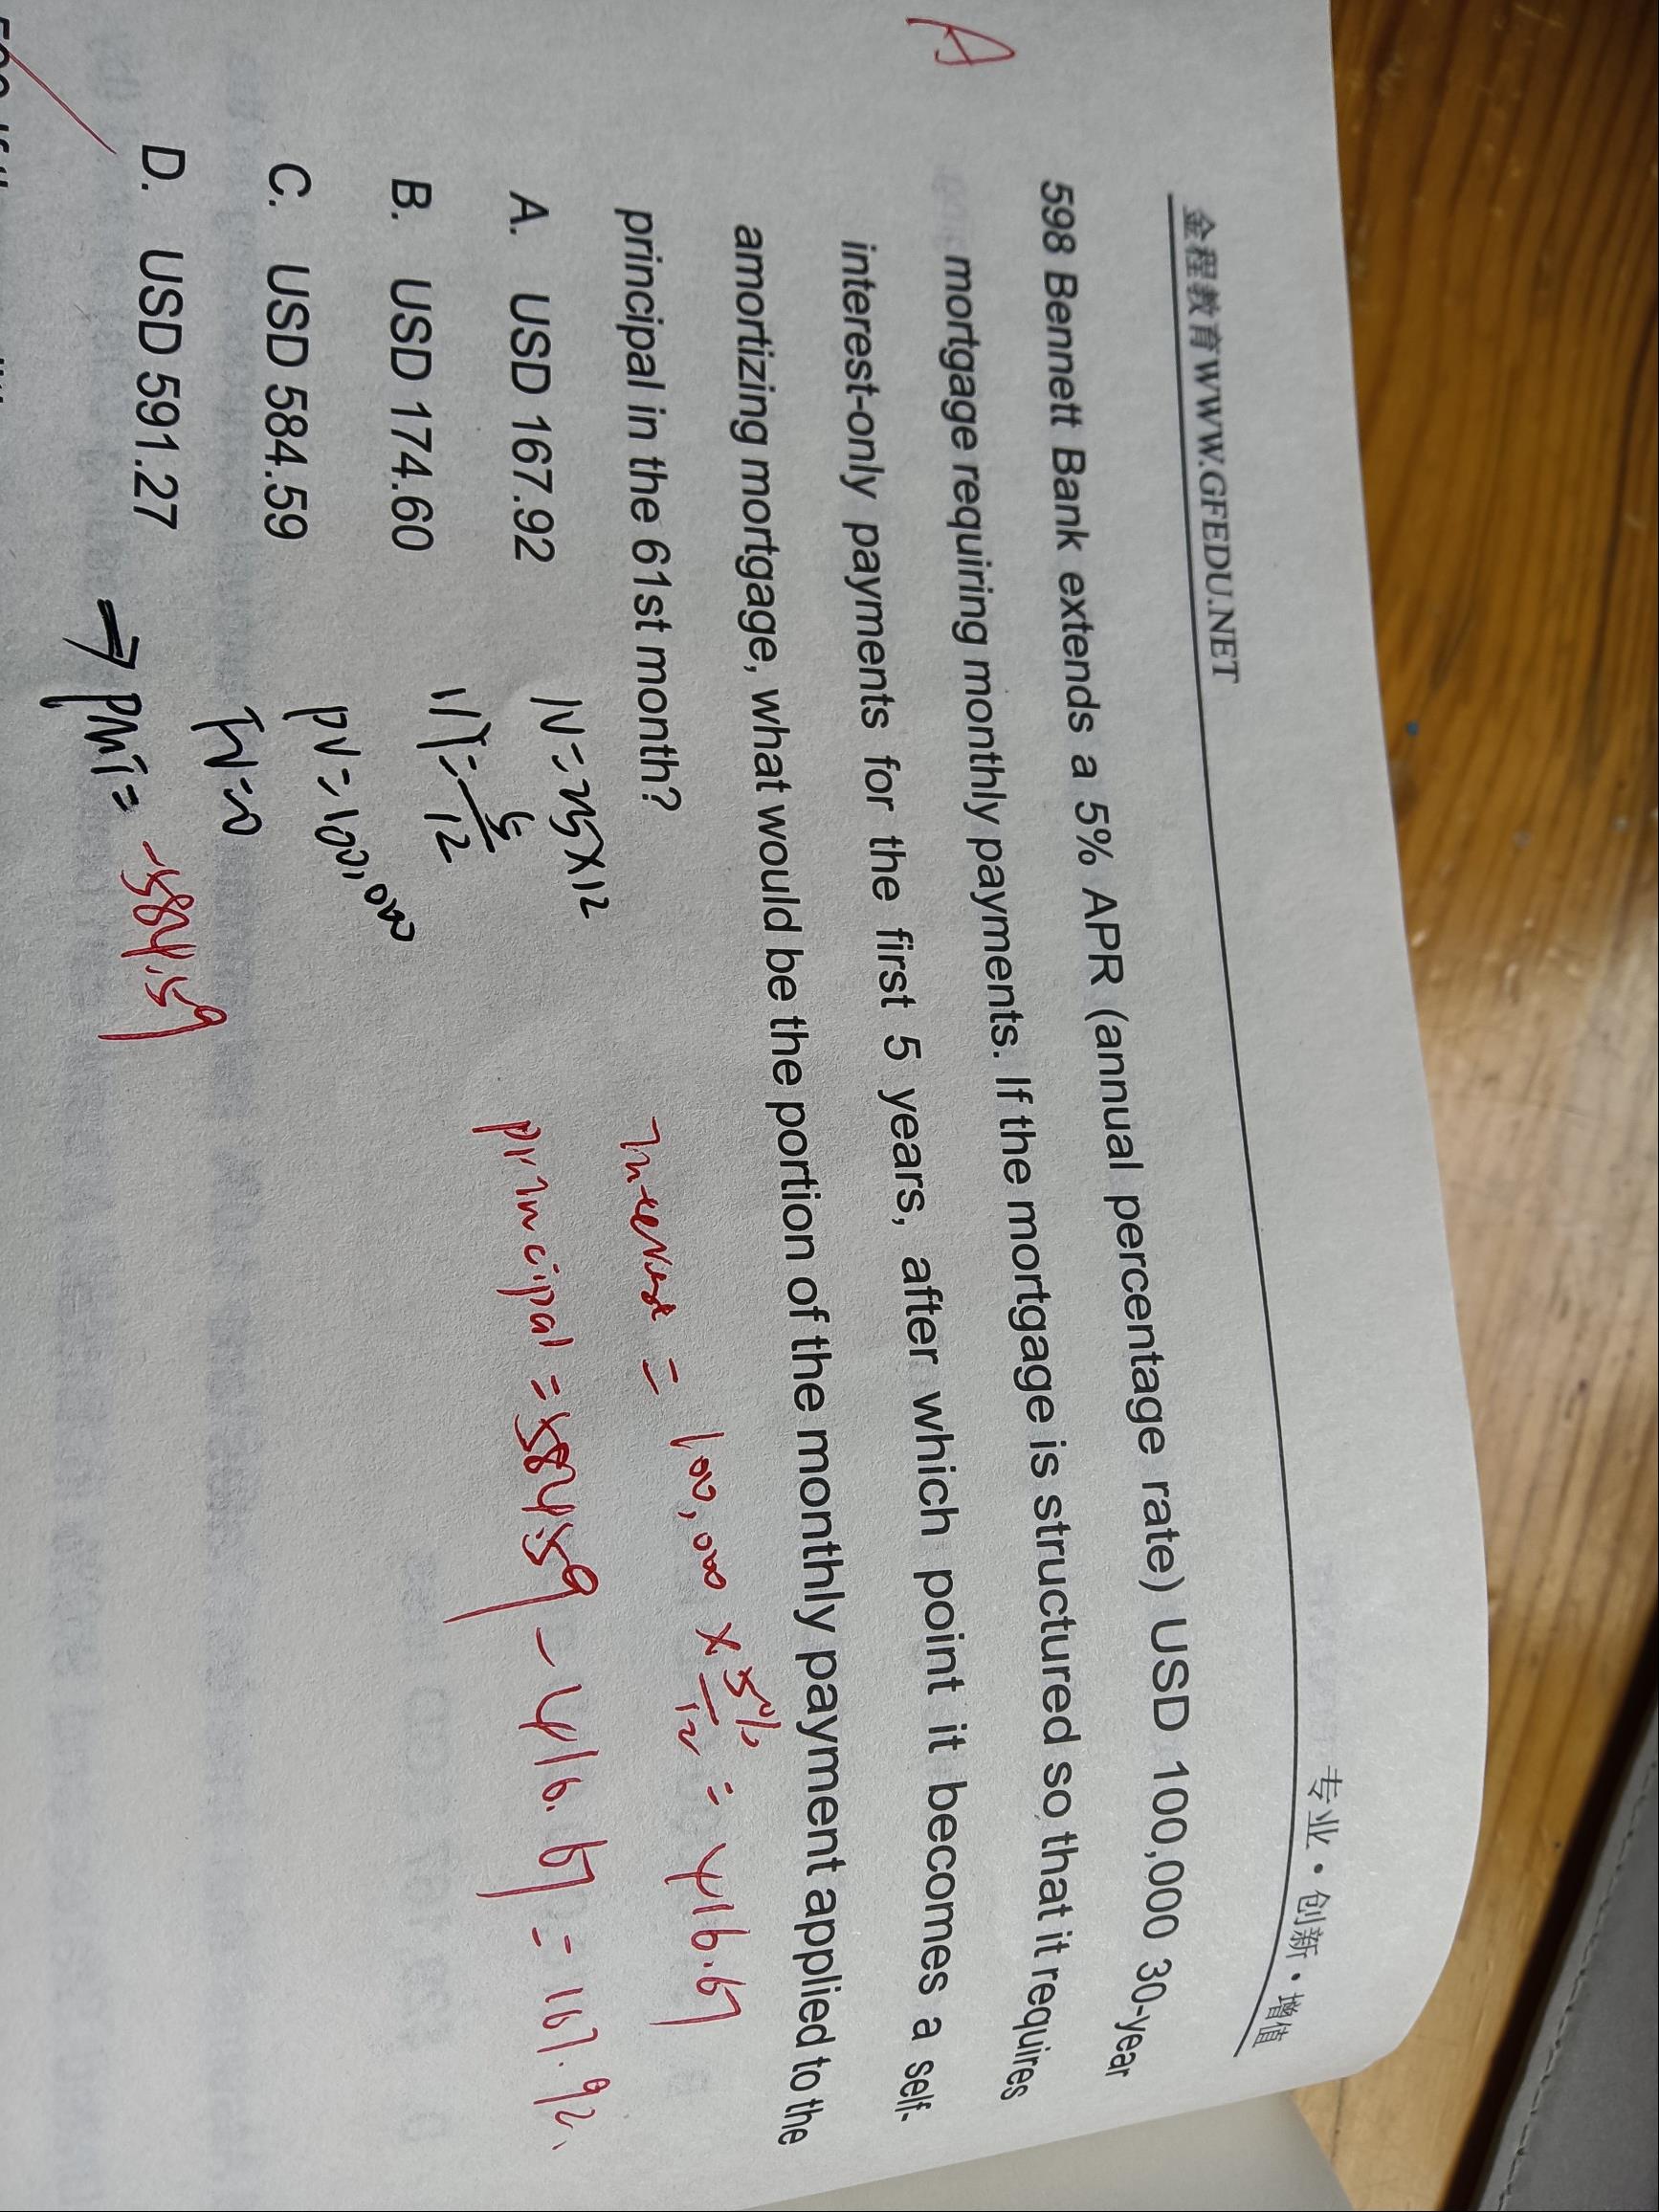 金程教育WWW.GFEDU.NET 专业·创新·增值
A
598 Bennett Bank extends a 5% APR (annual percentage rate) USD 100,000 30-year
mortgage requiring monthly payments. If the mortgage is structured so that it requires
interest-only payments for the first 5 years, after which point it becomes a self-
amortizing mortgage, what would be the portion of the monthly payment applied to the
principal in the 61st month?
A. USD 167.92
B. USD 174.60
C. USD 584.59
D. USD 591.27
N=25×12
I/Y=5/12
PV=100,000
FV=0
⇒ PMT= -584.59
Interest = 100,000 × 5%/12 = 416.67
principal = 584.59 - 416.67 = 167.92.